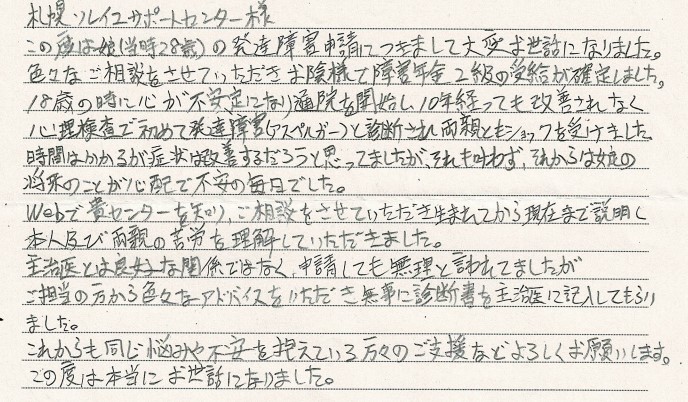 札幌ソレイユサポートセンター様
この度は娘(当時28歳)の発達障害申請につきまして大変お世話になりました。
色々なご相談をさせていただきお陰様で障害年金2級の受給が確定しました。
18歳の時に心が不安定になり通院を開始し、10年経っても改善されなく
心理検査で初めて発達障害(アスペルガー)と診断され両親ともショックを受けました。
時間はかかるが症状は改善するだろうと思ってましたが、それも叶わず、それからは娘の
将来のことが心配で不安の毎日でした。
Webで貴センターを知り、ご相談をさせていただき生まれてから現在まで説明し
本人及び両親の苦労を理解していただきました。
主治医とは良好な関係ではなく、申請しても無理と言われてましたが
ご担当の方から色々なアドバイスをいただき無事に診断書を主治医に記入してもらい
ました。
これからも同じ悩みや不安を抱えている方々のご支援などよろしくお願いします。
この度は本当にお世話になりました。